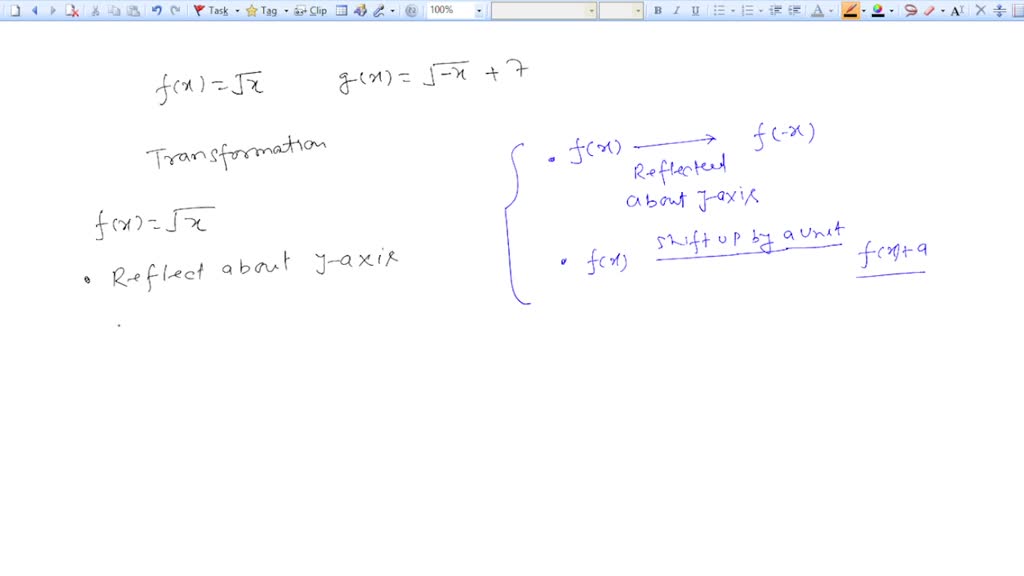 Task Tag Clip 100% B I U A
f(x) = √x g(x) = √-x + 7
Transformation
f(x) = √x
• Reflect about y-axis
• f(x) → f(-x)
Reflected
about y-axis
• f(x) shift up by a unit f(x)+a